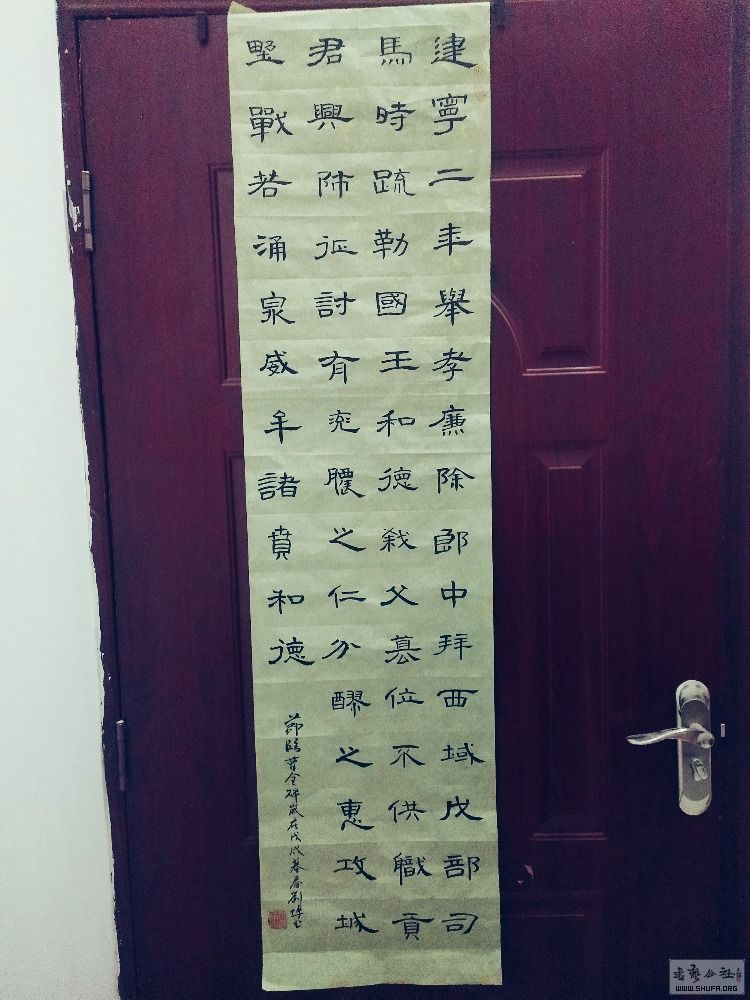 建寧二年舉孝廉除郎中拜西域戊部司
馬時疏勒國王和德殺父篡位不供職貢
君興師征討有兗膿之仁分醪之惠攻城
野戰若涌泉威牟諸賁和德
節臨曹全碑歲在戊戌暮春劉
書藝公社
WWW.SHUFA.ORG